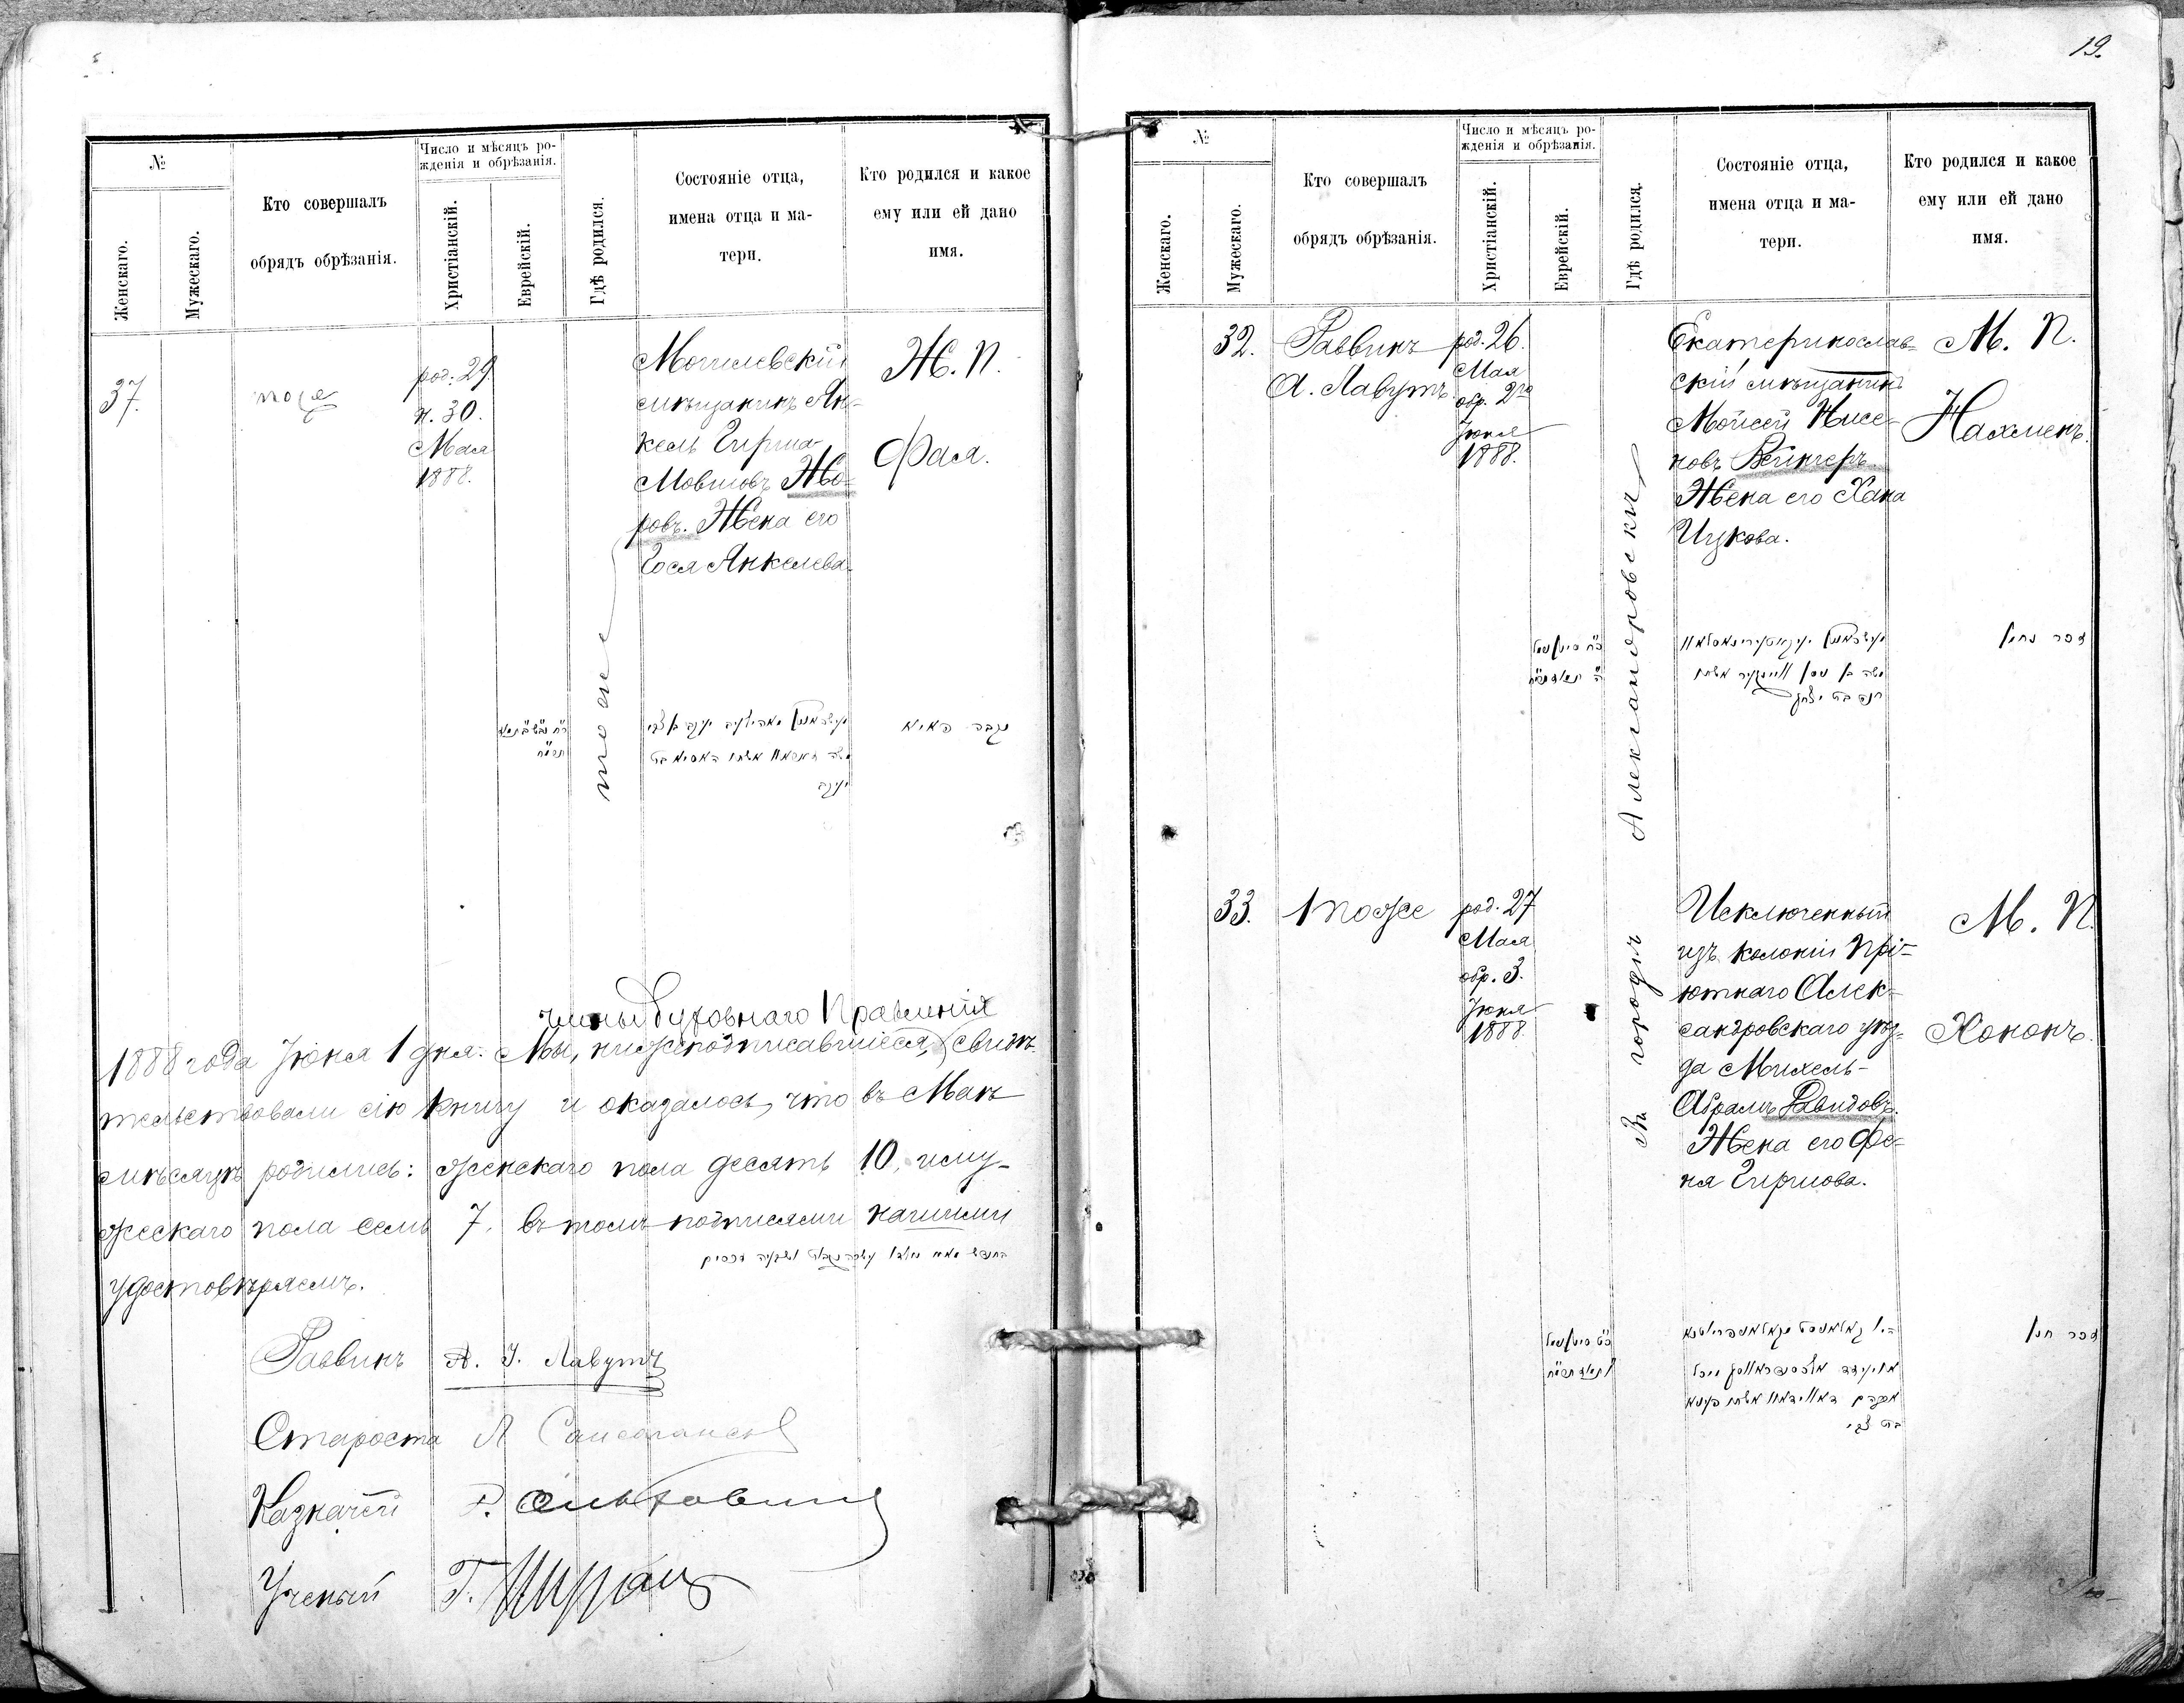 №
Женскаго.
Мужескаго.
Кто совершалъ
обрядъ обрѣзанія.
Число и мѣсяцъ ро-
жденія и обрѣзанія.
Христіанскій.
Еврейскій.
Гдѣ родился.
Состояніе отца,
имена отца и ма-
тери.
Кто родился и какое
ему или ей дано
имя.
37.
тоже
род. 29
н. 30.
Мая
1888.
тоже
Могилевскій
мѣщанинъ Ян-
кель Гирша-
Мовшовъ Жо-
ровъ. Жена его
Гося Янкелева
Ж. П.
Фая.
נקבה פאיא
члены Духовнаго Правленія
1888 года Іюня 1 дня. Мы, нижеподписавшіеся, свидѣ-
тельствовали сію книгу и оказалось, что въ Маѣ
мѣсяцѣ родились: женскаго пола десять 10, и му-
жескаго пола семь 7. въ томъ подписями нашими
удостовѣряемъ.
Раввинъ А. І. Лавутъ
Староста Л
Казначей
Ученый Г.
19.
№
Женскаго.
Мужескаго.
Кто совершалъ
обрядъ обрѣзанія.
Число и мѣсяцъ ро-
жденія и обрѣзанія.
Христіанскій.
Еврейскій.
Гдѣ родился.
Состояніе отца,
имена отца и ма-
тери.
Кто родился и какое
ему или ей дано
имя.
32.
Раввинъ
А. Лавутъ.
род. 26.
Мая
обр. 2го
Іюня
1888.
Въ городѣ Александровскѣ
Екатеринослав-
скій мѣщанинъ
Мойсей Нисе-
новъ Вейнгеръ
Жена его Хана
Ицкова.
חנה בת יצחק
М. П.
Нахменъ.
33.
тоже
род. 27
Мая
обр. 3.
Іюня
1888.
Исключенный
изъ колоніи Прі-
ютнаго Алек-
сандровскаго уѣз-
да Михель-
Абрамъ Давидовъ.
Жена его Фе-
ня Гиршова.
М. П.
Хононъ.